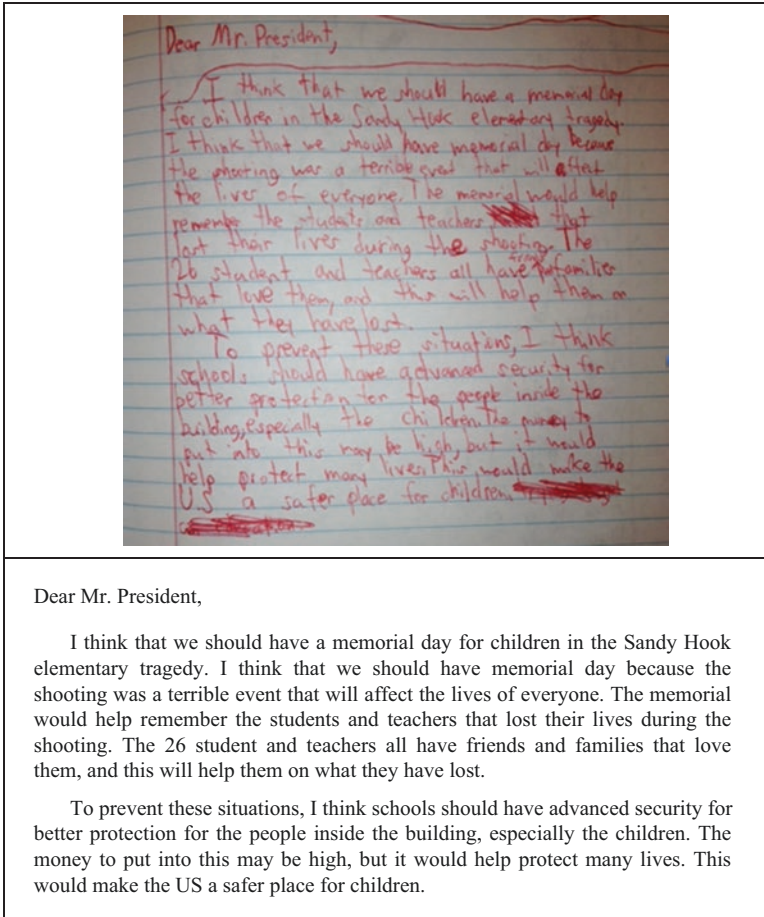 Dear Mr. President,
I think that we should have a memorial day
for children in the Sandy Hook elementary tragedy.
I think that we should have memorial day because
the shooting was a terrible event that will affect
the lives of everyone. The memorial would help
remember the students and teachers that
lost their lives during the shooting. The
26 student and teachers all have friends families
that love them, and this will help them on
what they have lost.
To prevent these situations, I think
schools should have advanced security for
better protection for the people inside the
building, especially the children. The money to
put into this may be high, but it would
help protect many lives. This would make the
U.S a safer place for children.
Dear Mr. President,
I think that we should have a memorial day for children in the Sandy Hook
elementary tragedy. I think that we should have memorial day because the
shooting was a terrible event that will affect the lives of everyone. The memorial
would help remember the students and teachers that lost their lives during the
shooting. The 26 student and teachers all have friends and families that love
them, and this will help them on what they have lost.
To prevent these situations, I think schools should have advanced security for
better protection for the people inside the building, especially the children. The
money to put into this may be high, but it would help protect many lives. This
would make the US a safer place for children.